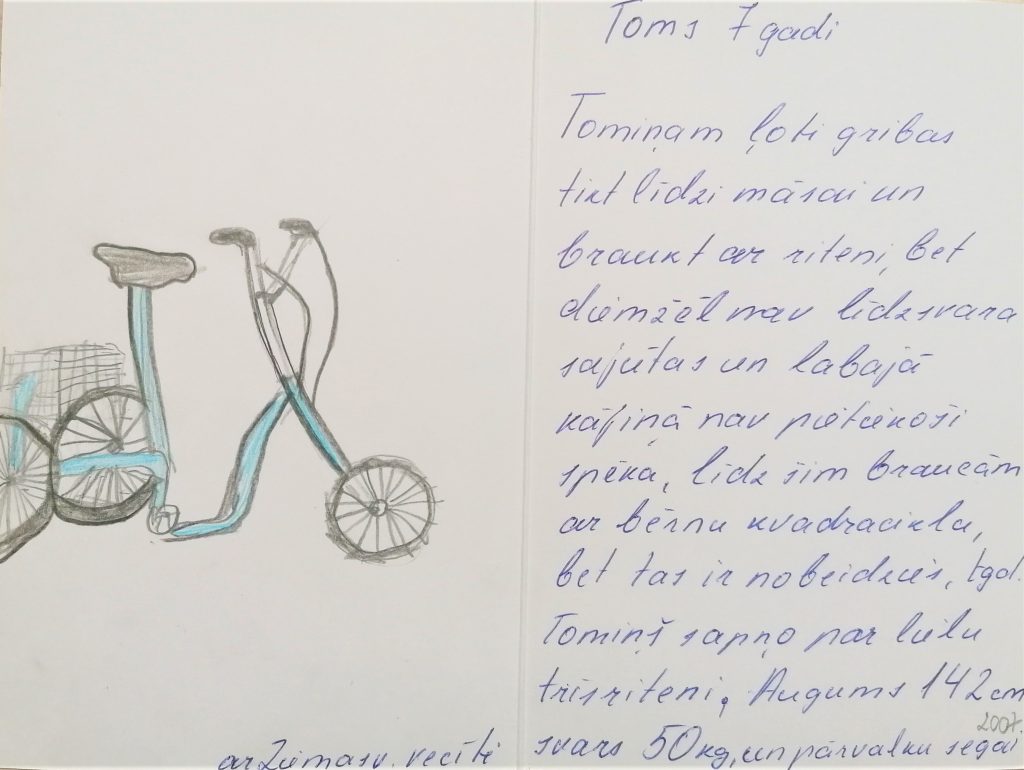 Toms 7 gadi
Tomiņam ļoti gribas
tikt līdzi māsai un
braukt ar riteni, bet
diemžēl nav līdzsvara
sajūtas un labajā
kājiņā nav pietiekoši
spēka, līdz šim braucām
ar bērnu kvadraciklu,
bet tas ir nobeidzies, tgd.
Tomiņš sapņo par lielu
trīsriteni. Augums 142 cm
2007.
svars 50 kg, un pārvalku segai
ar Ziemasv. vecīti